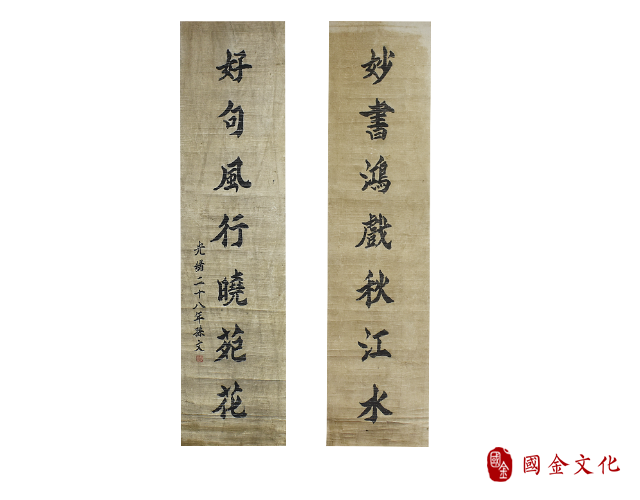 妙書鴻戲秋江水
好句風行曉苑花
光緒二十八年孫文
國金文化